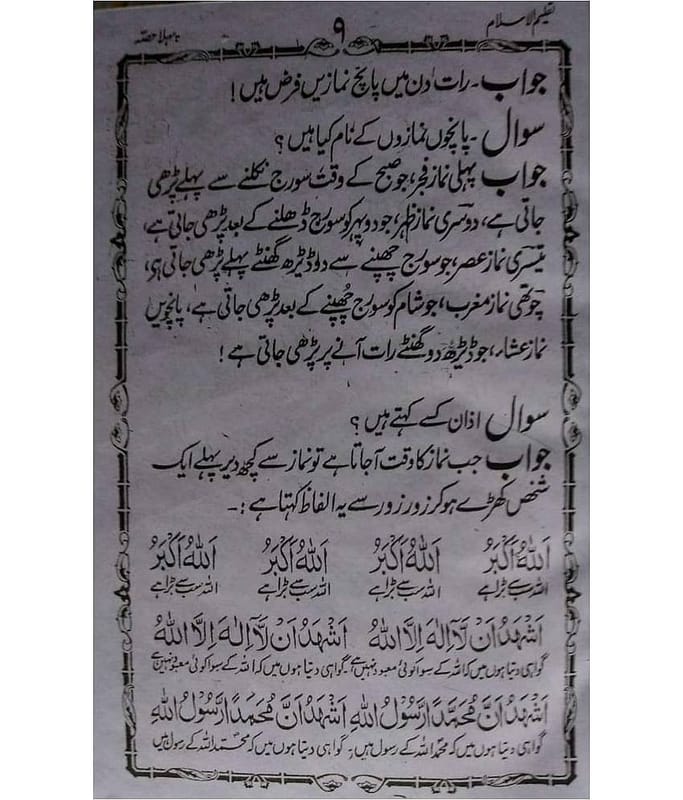 تعلیم الاسلام
۹
پہلا حصّہ
جواب۔ رات دن میں پانچ نمازیں فرض ہیں!
سوال۔ پانچوں نمازوں کے نام کیا ہیں؟
جواب پہلی نماز فجر، جو صبح کے وقت سورج نکلنے سے پہلے پڑھی
جاتی ہے، دوسری نماز ظہر، جو دوپہر کو سورج ڈھلنے کے بعد پڑھی جاتی ہے،
تیسری نماز عصر، جو سورج چھپنے سے دو ڈیڑھ گھنٹے پہلے پڑھی جاتی ہی،
چوتھی نماز مغرب، جو شام کو سورج چُھپنے کے بعد پڑھی جاتی ہے، پانچویں
نماز عشاء، جو ڈیڑھ دو گھنٹے رات آنے پر پڑھی جاتی ہے!
سوال اذان کسے کہتے ہیں؟
جواب جب نماز کا وقت آجاتا ہے تو نماز سے کچھ دیر پہلے ایک
شخص کھڑے ہو کر زور زور سے یہ الفاظ کہتا ہے:۔
اَللّٰهُ اَکْبَرُ اَللّٰهُ اَکْبَرُ اَللّٰهُ اَکْبَرُ اَللّٰهُ اَکْبَرُ
اللہ سب سے بڑا ہے اللہ سب سے بڑا ہے اللہ سب سے بڑا ہے اللہ سب سے بڑا ہے
اَشْهَدُ اَنْ لَّآ اِلٰهَ اِلَّا اللّٰهُ اَشْهَدُ اَنْ لَّآ اِلٰهَ اِلَّا اللّٰهُ
گواہی دیتا ہوں میں کہ اللہ کے سوا کوئی معبود نہیں ہے گواہی دیتا ہوں میں کہ اللہ کے سوا کوئی معبود نہیں ہے
اَشْهَدُ اَنَّ مُحَمَّدًا رَّسُوْلُ اللّٰهِ اَشْهَدُ اَنَّ مُحَمَّدًا رَّسُوْلُ اللّٰهِ
گواہی دیتا ہوں میں کہ محمدؐ اللہ کے رسول ہیں، گواہی دیتا ہوں میں کہ محمدؐ اللہ کے رسول ہیں